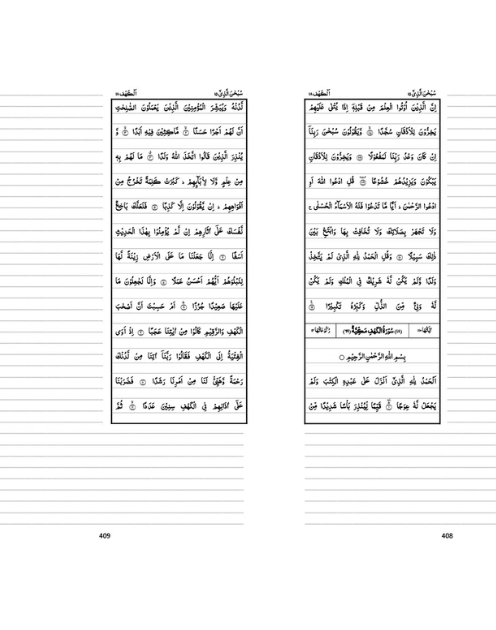 سُبْحٰنَ الَّذِیْٓ ۱۵ اَلْكَهْف ۱۸
اِنَّ الَّذِیْنَ اُوْتُوا الْعِلْمَ مِنْ قَبْلِهٖۤ اِذَا یُتْلٰی عَلَیْهِمْ
یَخِرُّوْنَ لِلْاَذْقَانِ سُجَّدًا وَّیَقُوْلُوْنَ سُبْحٰنَ رَبِّنَاۤ
اِنْ كَانَ وَعْدُ رَبِّنَا لَمَفْعُوْلًا وَیَخِرُّوْنَ لِلْاَذْقَانِ
یَبْكُوْنَ وَیَزِیْدُهُمْ خُشُوْعًا قُلِ ادْعُوا اللّٰهَ اَوِ
ادْعُوا الرَّحْمٰنَ ؕ اَیًّا مَّا تَدْعُوْا فَلَهُ الْاَسْمَآءُ الْحُسْنٰی ۚ
وَلَا تَجْهَرْ بِصَلَاتِكَ وَلَا تُخَافِتْ بِهَا وَابْتَغِ بَیْنَ
ذٰلِكَ سَبِیْلًا وَقُلِ الْحَمْدُ لِلّٰهِ الَّذِیْ لَمْ یَتَّخِذْ
وَلَدًا وَّلَمْ یَكُنْ لَّهٗ شَرِیْكٌ فِی الْمُلْكِ وَلَمْ یَكُنْ
لَّهٗ وَلِیٌّ مِّنَ الذُّلِّ وَكَبِّرْهُ تَكْبِیْرًا
سُوْرَةُ الْكَهْفِ مَكِّیَّةٌ
بِسْمِ اللّٰهِ الرَّحْمٰنِ الرَّحِیْمِ
اَلْحَمْدُ لِلّٰهِ الَّذِیْۤ اَنْزَلَ عَلٰی عَبْدِهِ الْكِتٰبَ وَلَمْ
یَجْعَلْ لَّهٗ عِوَجًا قَیِّمًا لِّیُنْذِرَ بَاْسًا شَدِیْدًا مِّنْ
408
سُبْحٰنَ الَّذِیْٓ ۱۵ اَلْكَهْف ۱۸
لَّدُنْهُ وَیُبَشِّرَ الْمُؤْمِنِیْنَ الَّذِیْنَ یَعْمَلُوْنَ الصّٰلِحٰتِ
اَنَّ لَهُمْ اَجْرًا حَسَنًا مَّاكِثِیْنَ فِیْهِ اَبَدًا وَّ
یُنْذِرَ الَّذِیْنَ قَالُوا اتَّخَذَ اللّٰهُ وَلَدًا مَا لَهُمْ بِهٖ
مِنْ عِلْمٍ وَّلَا لِاٰبَآئِهِمْ ؕ كَبُرَتْ كَلِمَةً تَخْرُجُ مِنْ
اَفْوَاهِهِمْ ؕ اِنْ یَّقُوْلُوْنَ اِلَّا كَذِبًا فَلَعَلَّكَ بَاخِعٌ
نَّفْسَكَ عَلٰۤی اٰثَارِهِمْ اِنْ لَّمْ یُؤْمِنُوْا بِهٰذَا الْحَدِیْثِ
اَسَفًا اِنَّا جَعَلْنَا مَا عَلَی الْاَرْضِ زِیْنَةً لَّهَا
لِنَبْلُوَهُمْ اَیُّهُمْ اَحْسَنُ عَمَلًا وَاِنَّا لَجٰعِلُوْنَ مَا
عَلَیْهَا صَعِیْدًا جُرُزًا اَمْ حَسِبْتَ اَنَّ اَصْحٰبَ
الْكَهْفِ وَالرَّقِیْمِ كَانُوْا مِنْ اٰیٰتِنَا عَجَبًا اِذْ اَوَی
الْفِتْیَةُ اِلَی الْكَهْفِ فَقَالُوْا رَبَّنَاۤ اٰتِنَا مِنْ لَّدُنْكَ
رَحْمَةً وَّهَیِّئْ لَنَا مِنْ اَمْرِنَا رَشَدًا فَضَرَبْنَا
عَلٰۤی اٰذَانِهِمْ فِی الْكَهْفِ سِنِیْنَ عَدَدًا ثُمَّ
409